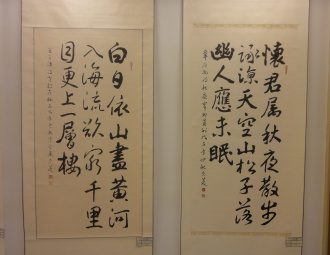 白日依山盡黃河
入海流欲窮千里
目更上一層樓
懷君属秋夜散步
詠凉天空山松子落
幽人應未眠